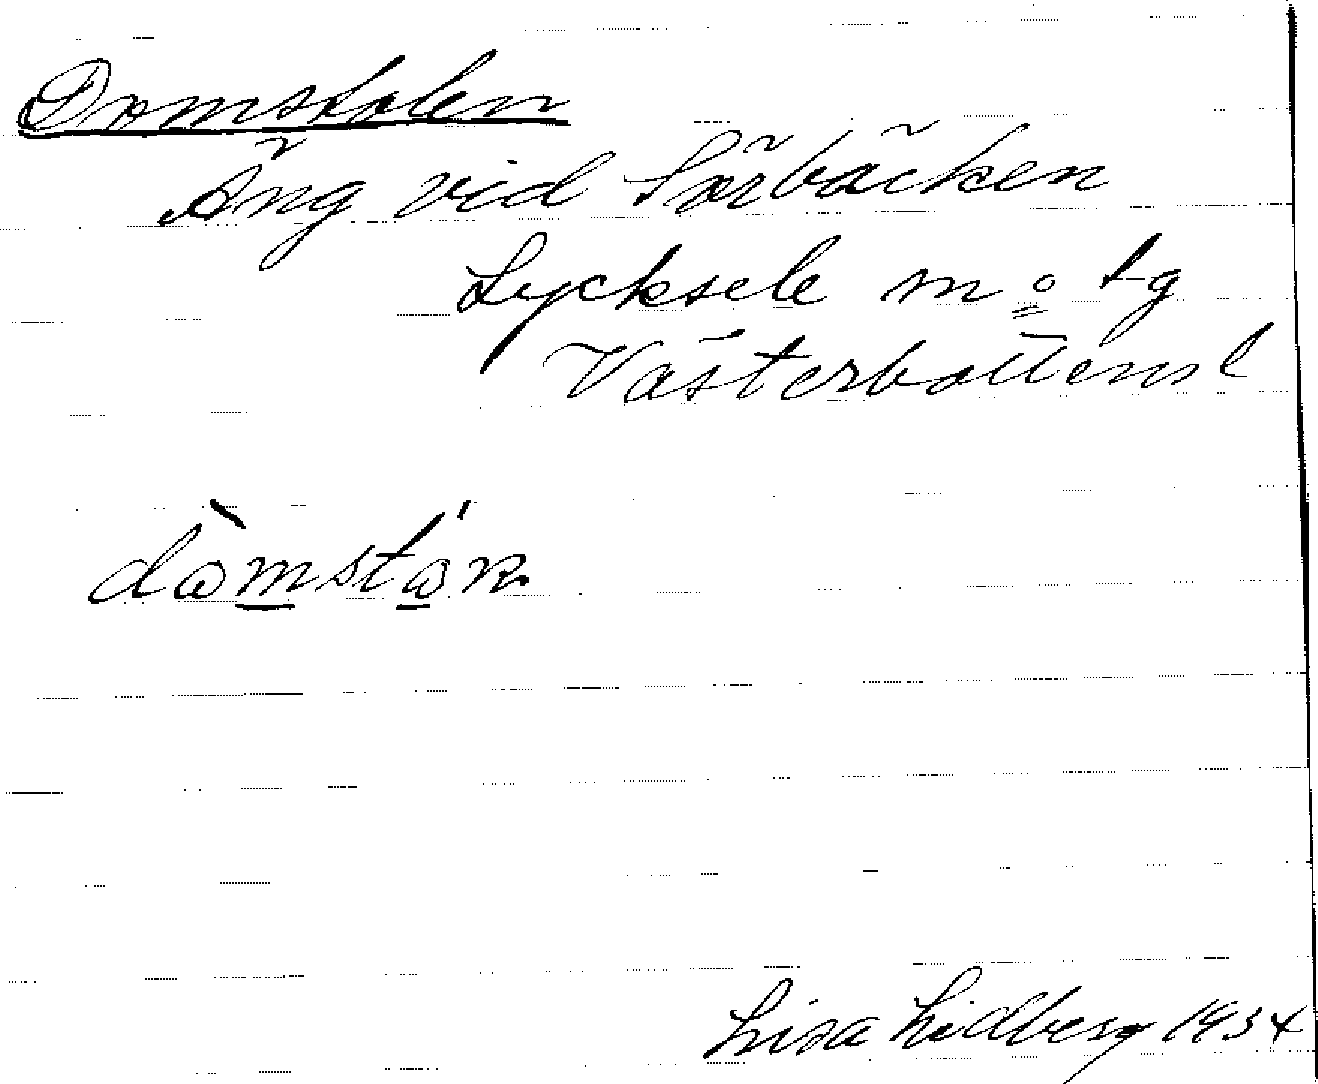 Domstolen
Äng vid Sörbäcken
Lycksele m o tg
Västerbottens l
Lisa Lidberg 1934